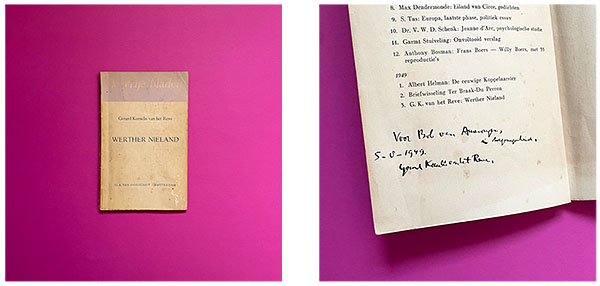 De Vrije Bladen
Gerard Kornelis van het Reve
WERTHER NIELAND
8. Max Dendermonde: Eiland van Circe, gedichten
9. S. Tas: Europa, laatste phase, politiek essay
10. Dr. V. W. D. Schenk: Jeanne d'Arc, psychologische studie
11. Garmt Stuiveling: Onvoltooid verslag
12. Anthony Bosman: Frans Boers — Willy Boers, met 75
reproductie's
1949
1. Albert Helman: De eeuwige Koppelaarster
2. Briefwisseling Ter Braak-Du Perron
3. G. K. van het Reve: Werther Nieland
Voor Bob van
5-8-1949.
Gerard Kornelis van het Reve.